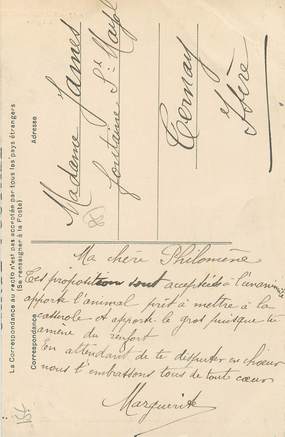 La Correspondance au recto n'est pas acceptée par tous les pays étrangers
(Se renseigner à la Poste)
Correspondance
Adresse
Madame James
fontaine St
Ternay
Isère
Ma chère Philomène
Tes proposition sont acceptées à l'unanimité
apporte l'animal prêt à mettre à la
casserole et apporte le gros puisque tu
amène du renfort
En attendant de te disputer en chœur
nous t'embrassons tous de tout cœur
Marguerite